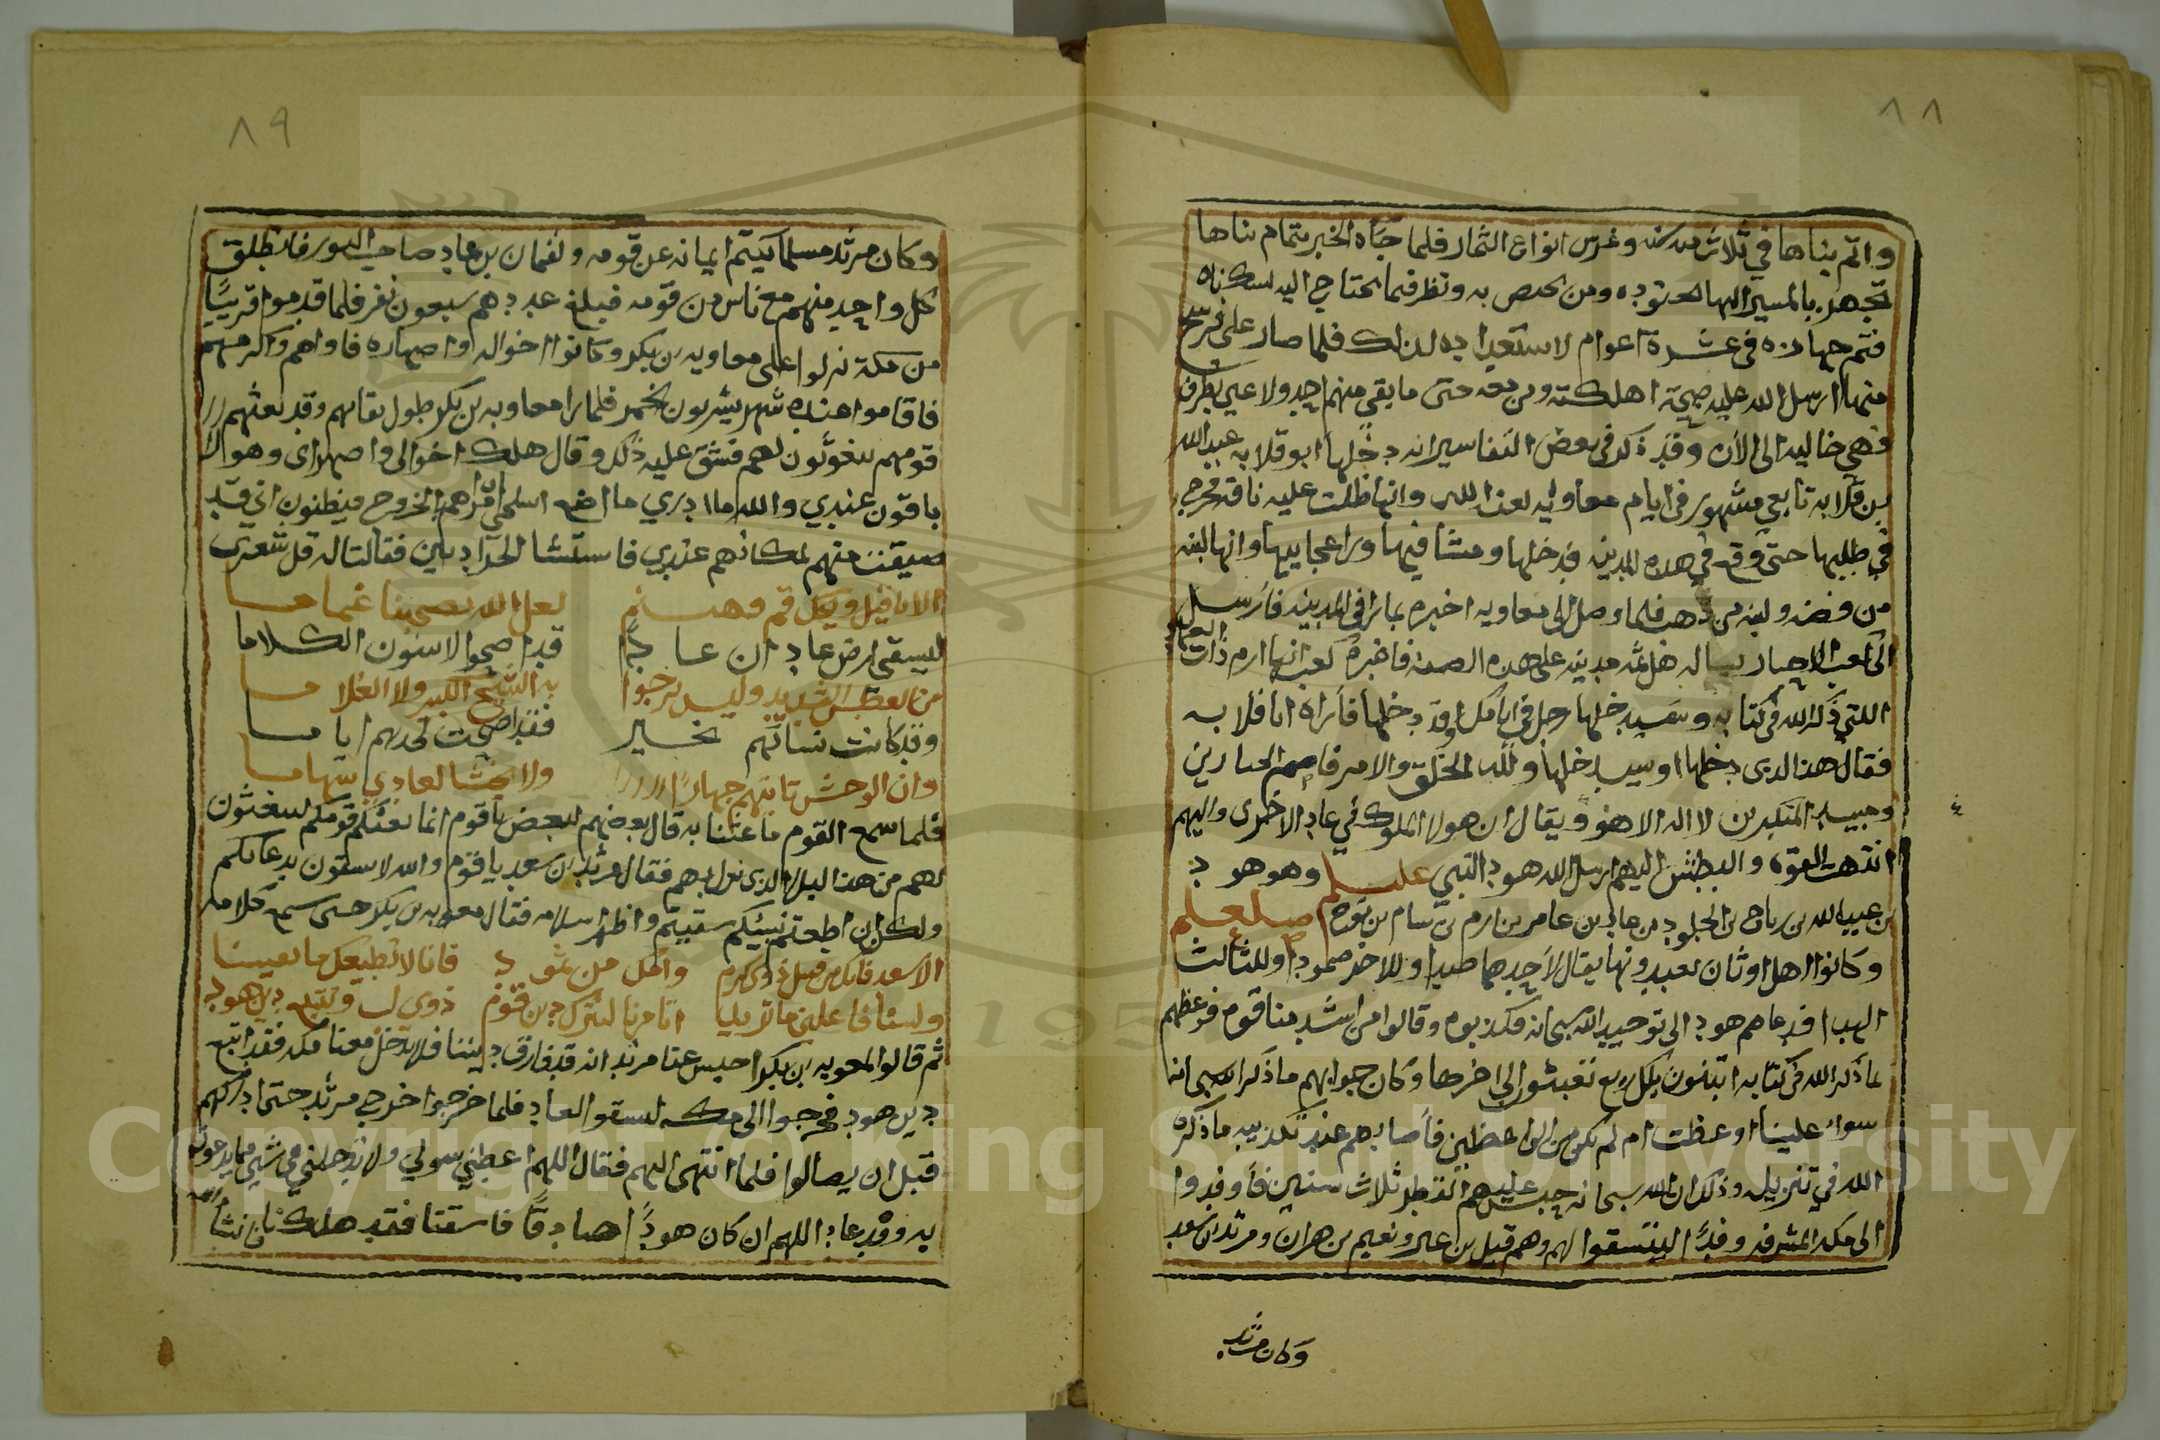 ٨٨
واتم بناها في ثلاث مية سنه وغرس انواع الثمار فلما جاه الخبر بتمام بناها
تجهز بالمسير اليها بجنوده ومن يختص به ونظر فيما يحتاج اليه لسكناه
فتم جهازه في عشرة اعوام لاستعداده لذلك فلما صار على فرسخ
منها ارسل الله عليه صيحة اهلكته ومن معه حتى ما بقي منهم احد ولا عين تطرف
فهي خاليه الى الان وقد ذكر في بعض التفاسير انه دخلها ابو قلابه عبد الله
بن قلابه تابعي مشهور في ايام معاويه لعنه الله وانها ظلت عليه ناقه فخرج
في طلبها حتى وقع في هذه المدينه فدخلها ومشا فيها ورا عجايبها وانها لبنه
من فضه ولبنه من ذهب فلما وصل الى معاويه اخبره بما را في المدينه فارسل
الى كعب الاحبار يساله هل ثم مدينه على هذه الصفه فاخبره كعب انها ارم ذات العماد
اللتي ذكر الله في كتابه وسيدخلها رجل في ايامك او قد دخلها فاراه ابا قلابه
فقال هذا الذي دخلها او سيدخلها ولله الخلق والامر قاصم الجبارين
ومبيد المتكبرين لا اله الا هو ويقال ان هولا الملوك في عاد الاخرى واليهم
انتهت القوه والبطش اليهم ارسل الله هود النبي عليلم وهو هود
بن عبد الله بن رباح بن الجلود بن عاد بن عامر بن ارم بن سام بن نوح صلعلم
وكانوا اهل اوثان يعبدونها يقال لاحدهما صدا وللاخر صمودا وللثالث
الهبا فدعاهم هود الى توحيد الله سبحانه فكذبوه وقالوا من اشد منا قوه فوعظهم
بما ذكر الله في كتابه اتبنون بكل ريع تعبثون الى اخرها وكان جوابهم ما ذكر الله سبحانه
سوا علينا اوعظت ام لم تكن من الواعظين فاصابهم عند تكذيبه ما ذكره
الله في تنزيله وذلك ان الله سبحانه حبس عليهم القطر ثلاث سنين فاوفدوا
الى مكه المشرفه وفدا ليتسقوا لهم وهم قيل بن عير ونعيم بن هزان ومرثد بن سعد
وكان مرثد
٨٩
وكان مرثد مسلما يكتم ايمانه عن قومه ولقمان بن عاد صاحب النسور فانطلق
كل واحد منهم مع ناس من قومه فبلغ عددهم سبعون نفر فلما قدموا قريبا
من مكة نزلوا على معاويه بن بكر وكانوا اخواله او اصهاره فاواهم واكرمهم
فاقاموا عنده شهر يشربون الخمر فلما را معاويه بن بكر طول بقايهم وقد بعثهم
قومهم يتغوثون لهم فشق عليه ذلك وقال هلك اخوالي واصهاري وهولا
باقون عندي والله ما ادري ما اصنع استحي ان امرهم بالخروج فيظنون اني قد
ضيقت منهم لمكانهم عندي فاستشا الجرادتين فقالتا له قل شعرى
الا يا قيل ويحك قم فهينم لعل الله يصبحنا غماما
ليسقي ارض عاد ان عادا قد اصبحوا لا يبينون الكلاما
من العطش الشديد وليس نرجوا به الشيخ الكبير ولا الغلاما
وقد كانت نساتهم بخير فقد اصبحت لحدهم اياما
وان الوحش تاتيهم جهارا ولا تخشا لعادي سهاما
فلما سمع القوم ما غنتا به قال بعضهم لبعض يا قوم انما بعثكم قومكم لتتغثون
لهم من هذا البلا الذي نزل بهم فقال مرثد بن سعد يا قوم والله لا تسقون بدعائكم
ولكن ان اطعتم نبيكم سقيتم واظهر اسلامه فقال معويه بن بكر حين سمع كلامه
الا سعد فانك من قبيل ذوي كرم وامك من ثمود فانا لا نطيعك ما بقينا
ولسنا فاعلين ما تريد اتامرنا لنترك دين قوم ذوي لب ونتبع دين هود
ثم قالوا لمعويه بن بكر احبس عنا مرثد انه قد فارق ديننا فلا يدخل معنا مكه فقد اتبع
دين هود فخرجوا الى مكه ليستقوا لعاد فلما خرجوا خرج مرثد حتى ادركهم
قبل ان يصالوا فلما انتهى اليهم فقال اللهم اعطني سولي ولا تدخلني في شي مما يدعوك
به وفد عاد اللهم ان كان هودا صادقا فاسقنا فقد هلكنا فانشا الله